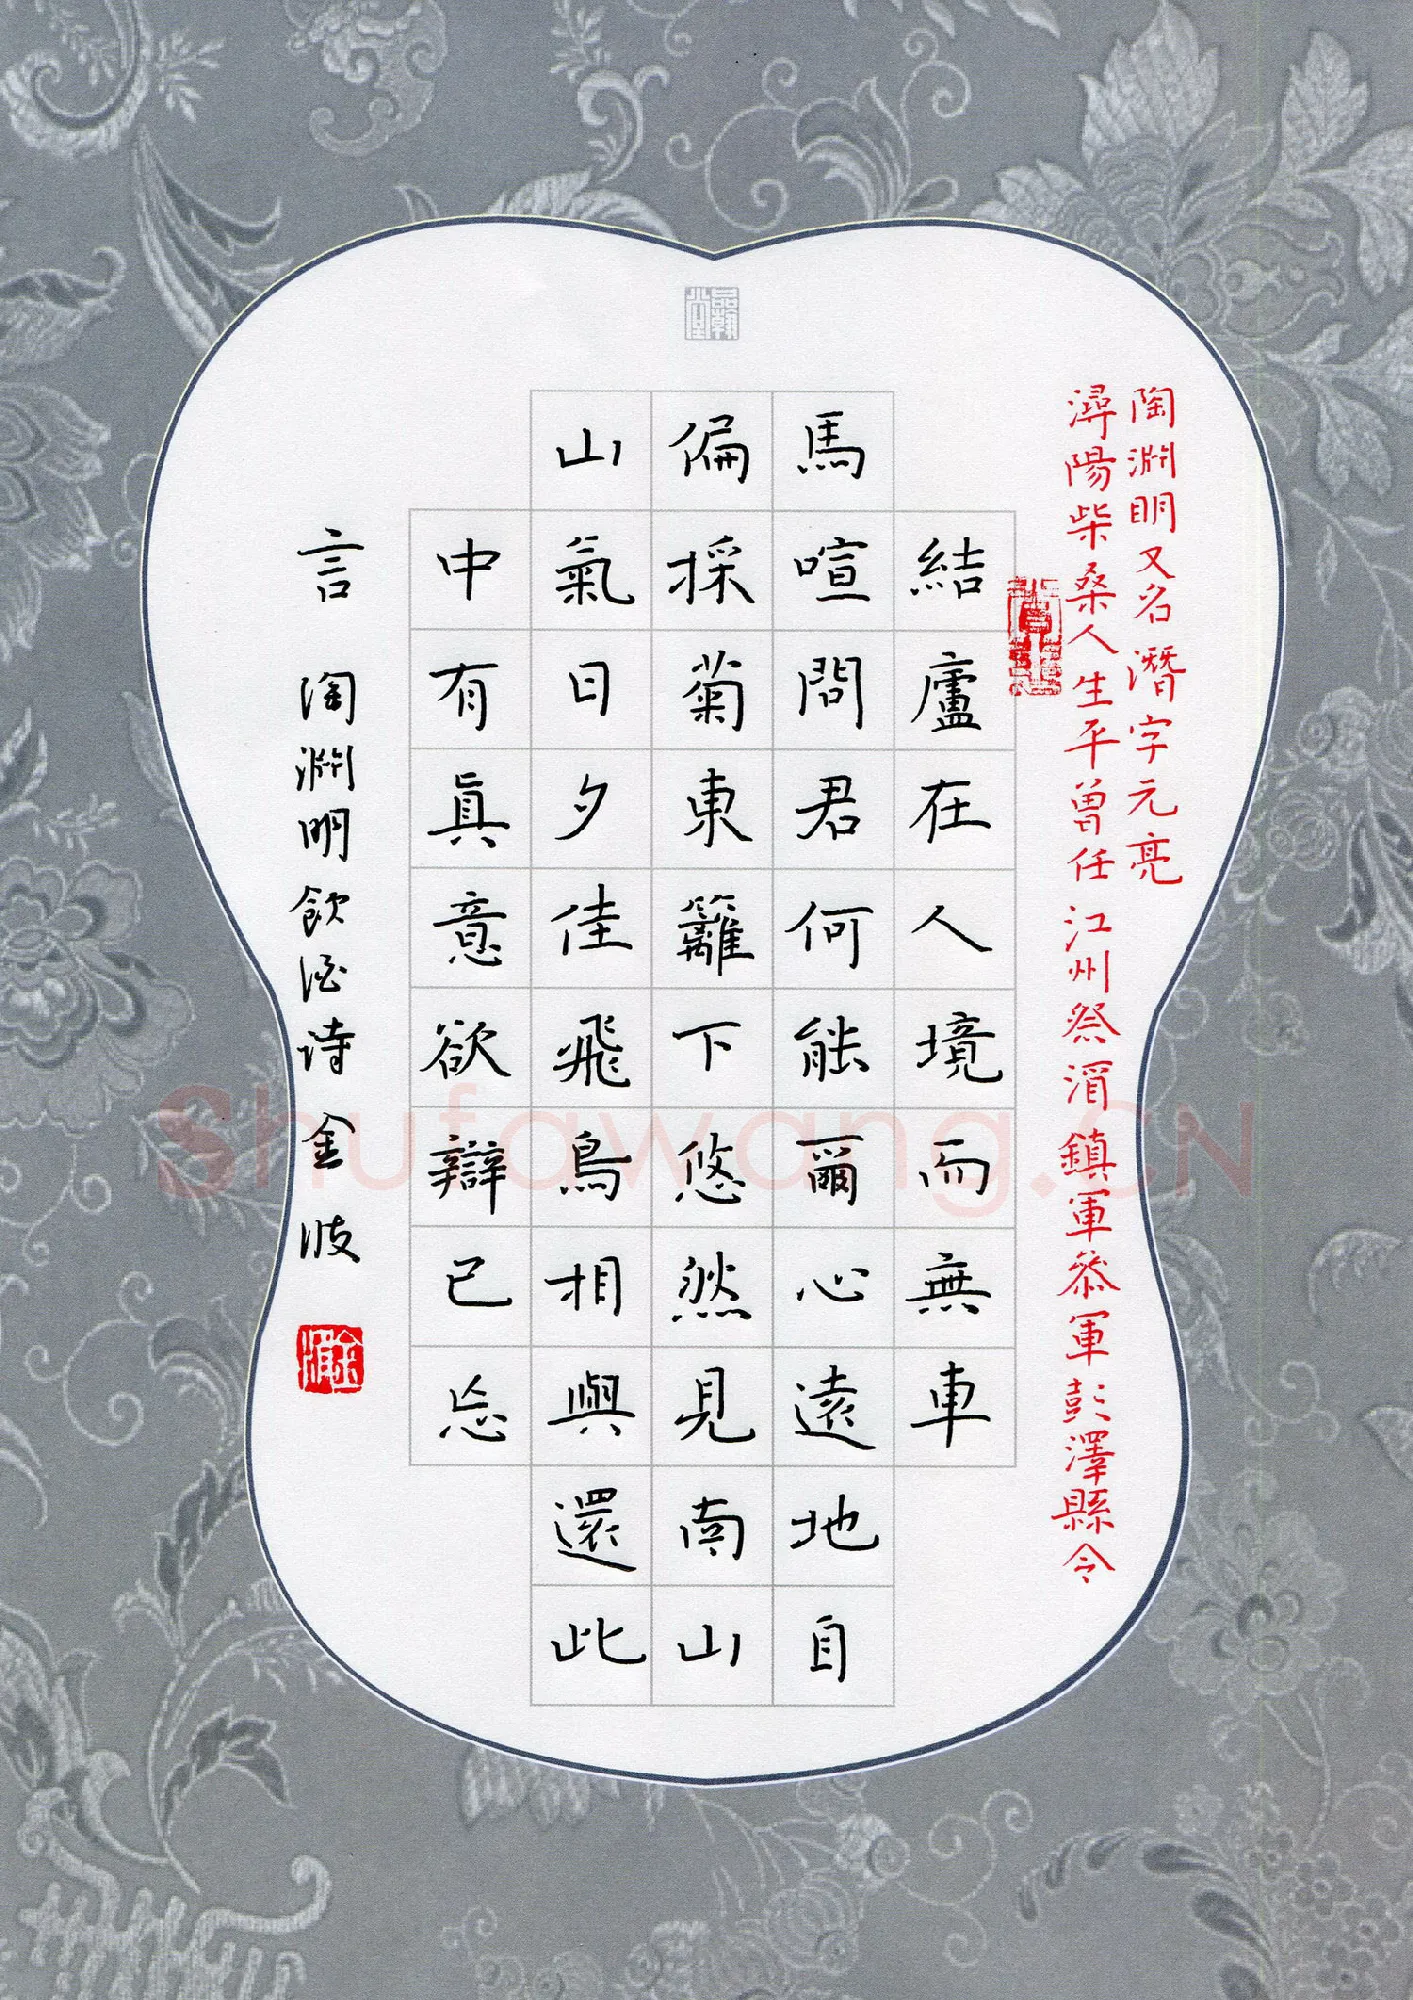 陶淵明又名潛字元亮
潯陽柴桑人生平曾任江州祭酒鎮軍叅軍彭澤縣令
結廬在人境而無車
馬喧問君何能爾心遠地自
偏採菊東籬下悠然見南山
山氣日夕佳飛鳥相與還此
中有真意欲辯已忘
言 陶淵明飲酒詩 金波
品翰堂
Shufawang.CN